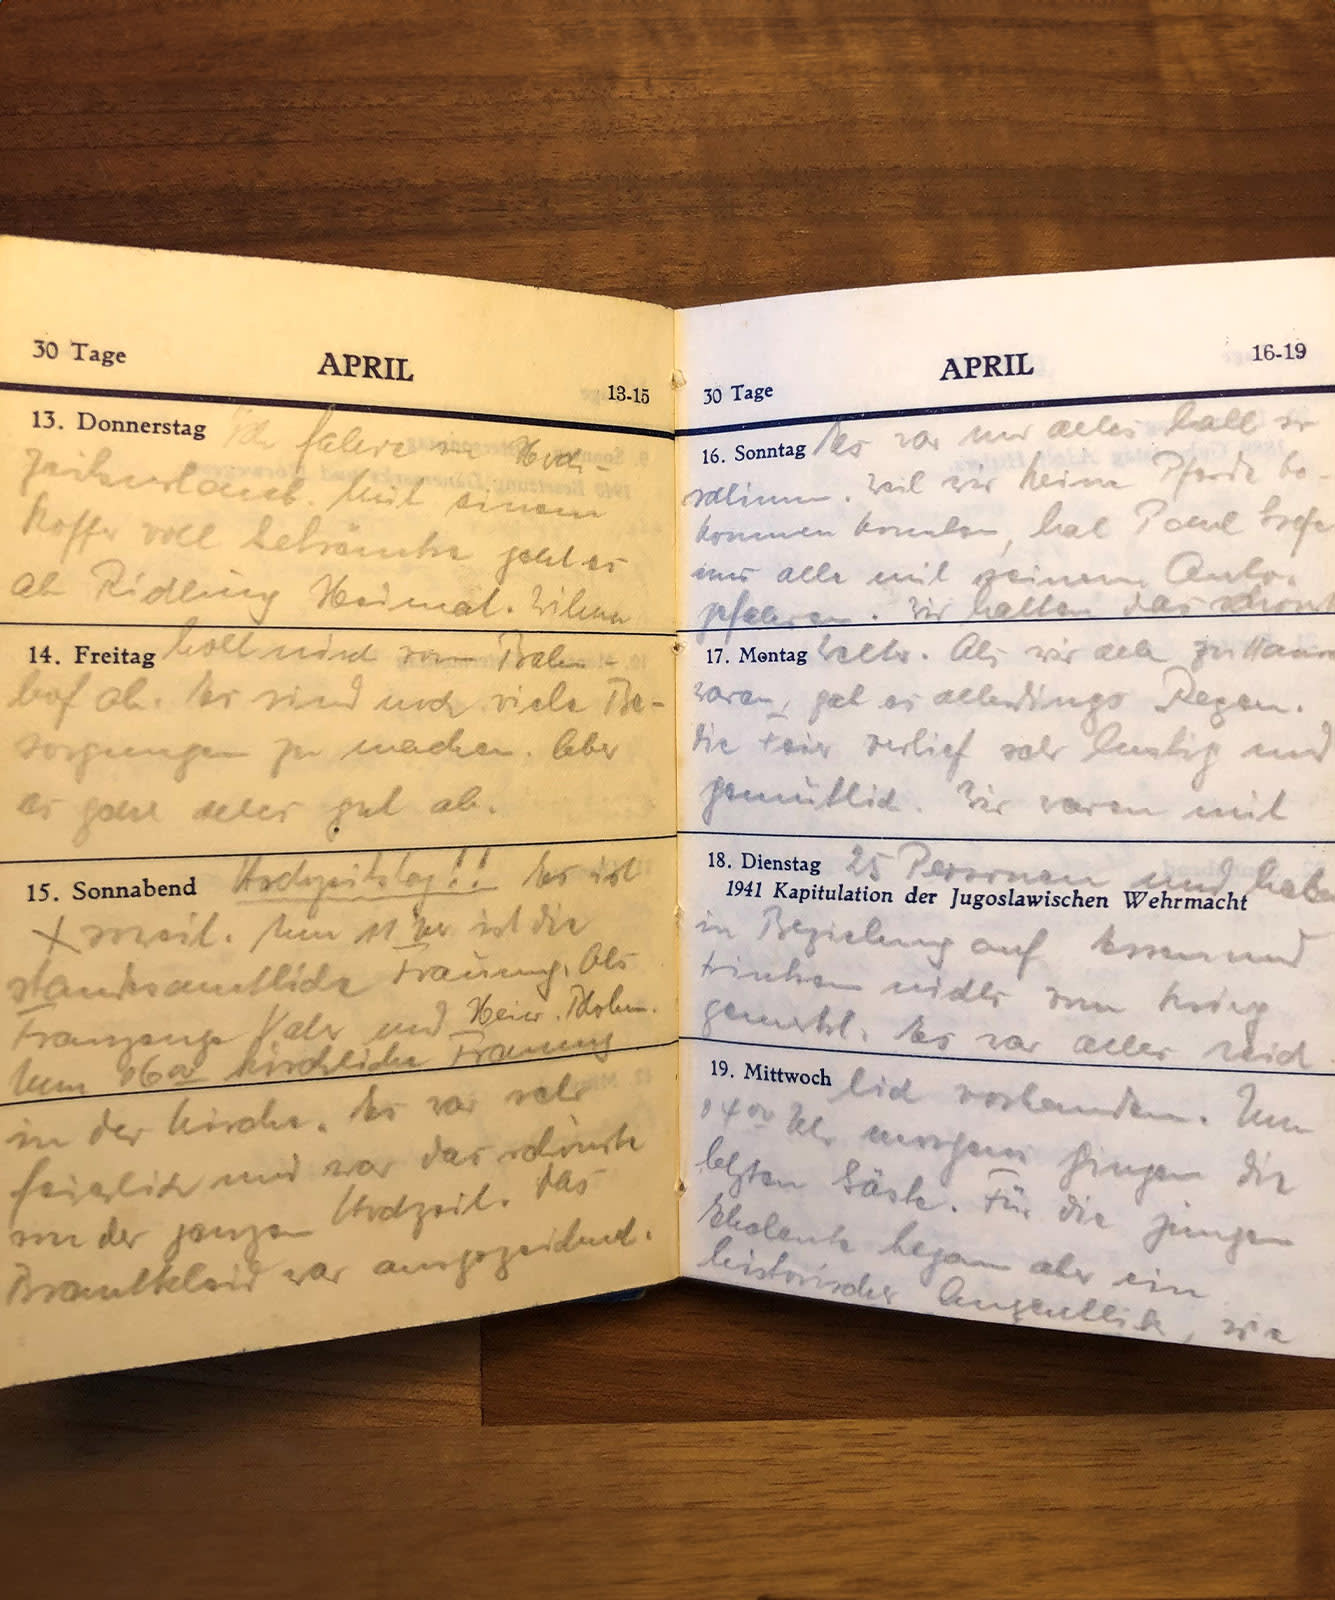 30 Tage
APRIL
13-15
13. Donnerstag Ich fahre in Hoch-
zeitsurlaub. Mit einem
Koffer voll Getränke geht es
ab Richtung Heimat. Wilma
14. Freitag holt mich vom Bahn-
hof ab. Es sind noch viele Be-
sorgungen zu machen. Aber
es geht alles gut ab.
15. Sonnabend Hochzeitstag!! Es ist
soweit. Um 11 Uhr ist die
standesamtliche Trauung. Als
Trauzeuge Vater und Heinr.
Um 16 00 kirchliche Trauung
in der Kirche. Es war sehr
feierlich und war das schönste
von der ganzen Hochzeit. Das
Brautkleid war ausgezeichnet.
30 Tage
APRIL
16-19
16. Sonntag Es war nur alles halb so
schlimm. Weil wir keine Pferde be-
kommen konnten, hat Paul
uns alle mit seinem Auto
gefahren. Wir hatten das schönste
17. Montag Wetter. Als wir alle zu Hause
waren, gab es allerdings Regen.
Die Feier verlief sehr lustig und
gemütlich. Wir waren mit
18. Dienstag 25 Personen und haben
1941 Kapitulation der Jugoslawischen Wehrmacht
in Beziehung auf Essen und
Trinken nichts vom Krieg
gemerkt. Es war alles reich
19. Mittwoch lich vorhanden. Um
04 00 Uhr morgens gingen die
letzten Gäste. Für die jungen
Eheleute begann aber ein
historischer Augenblick, wie